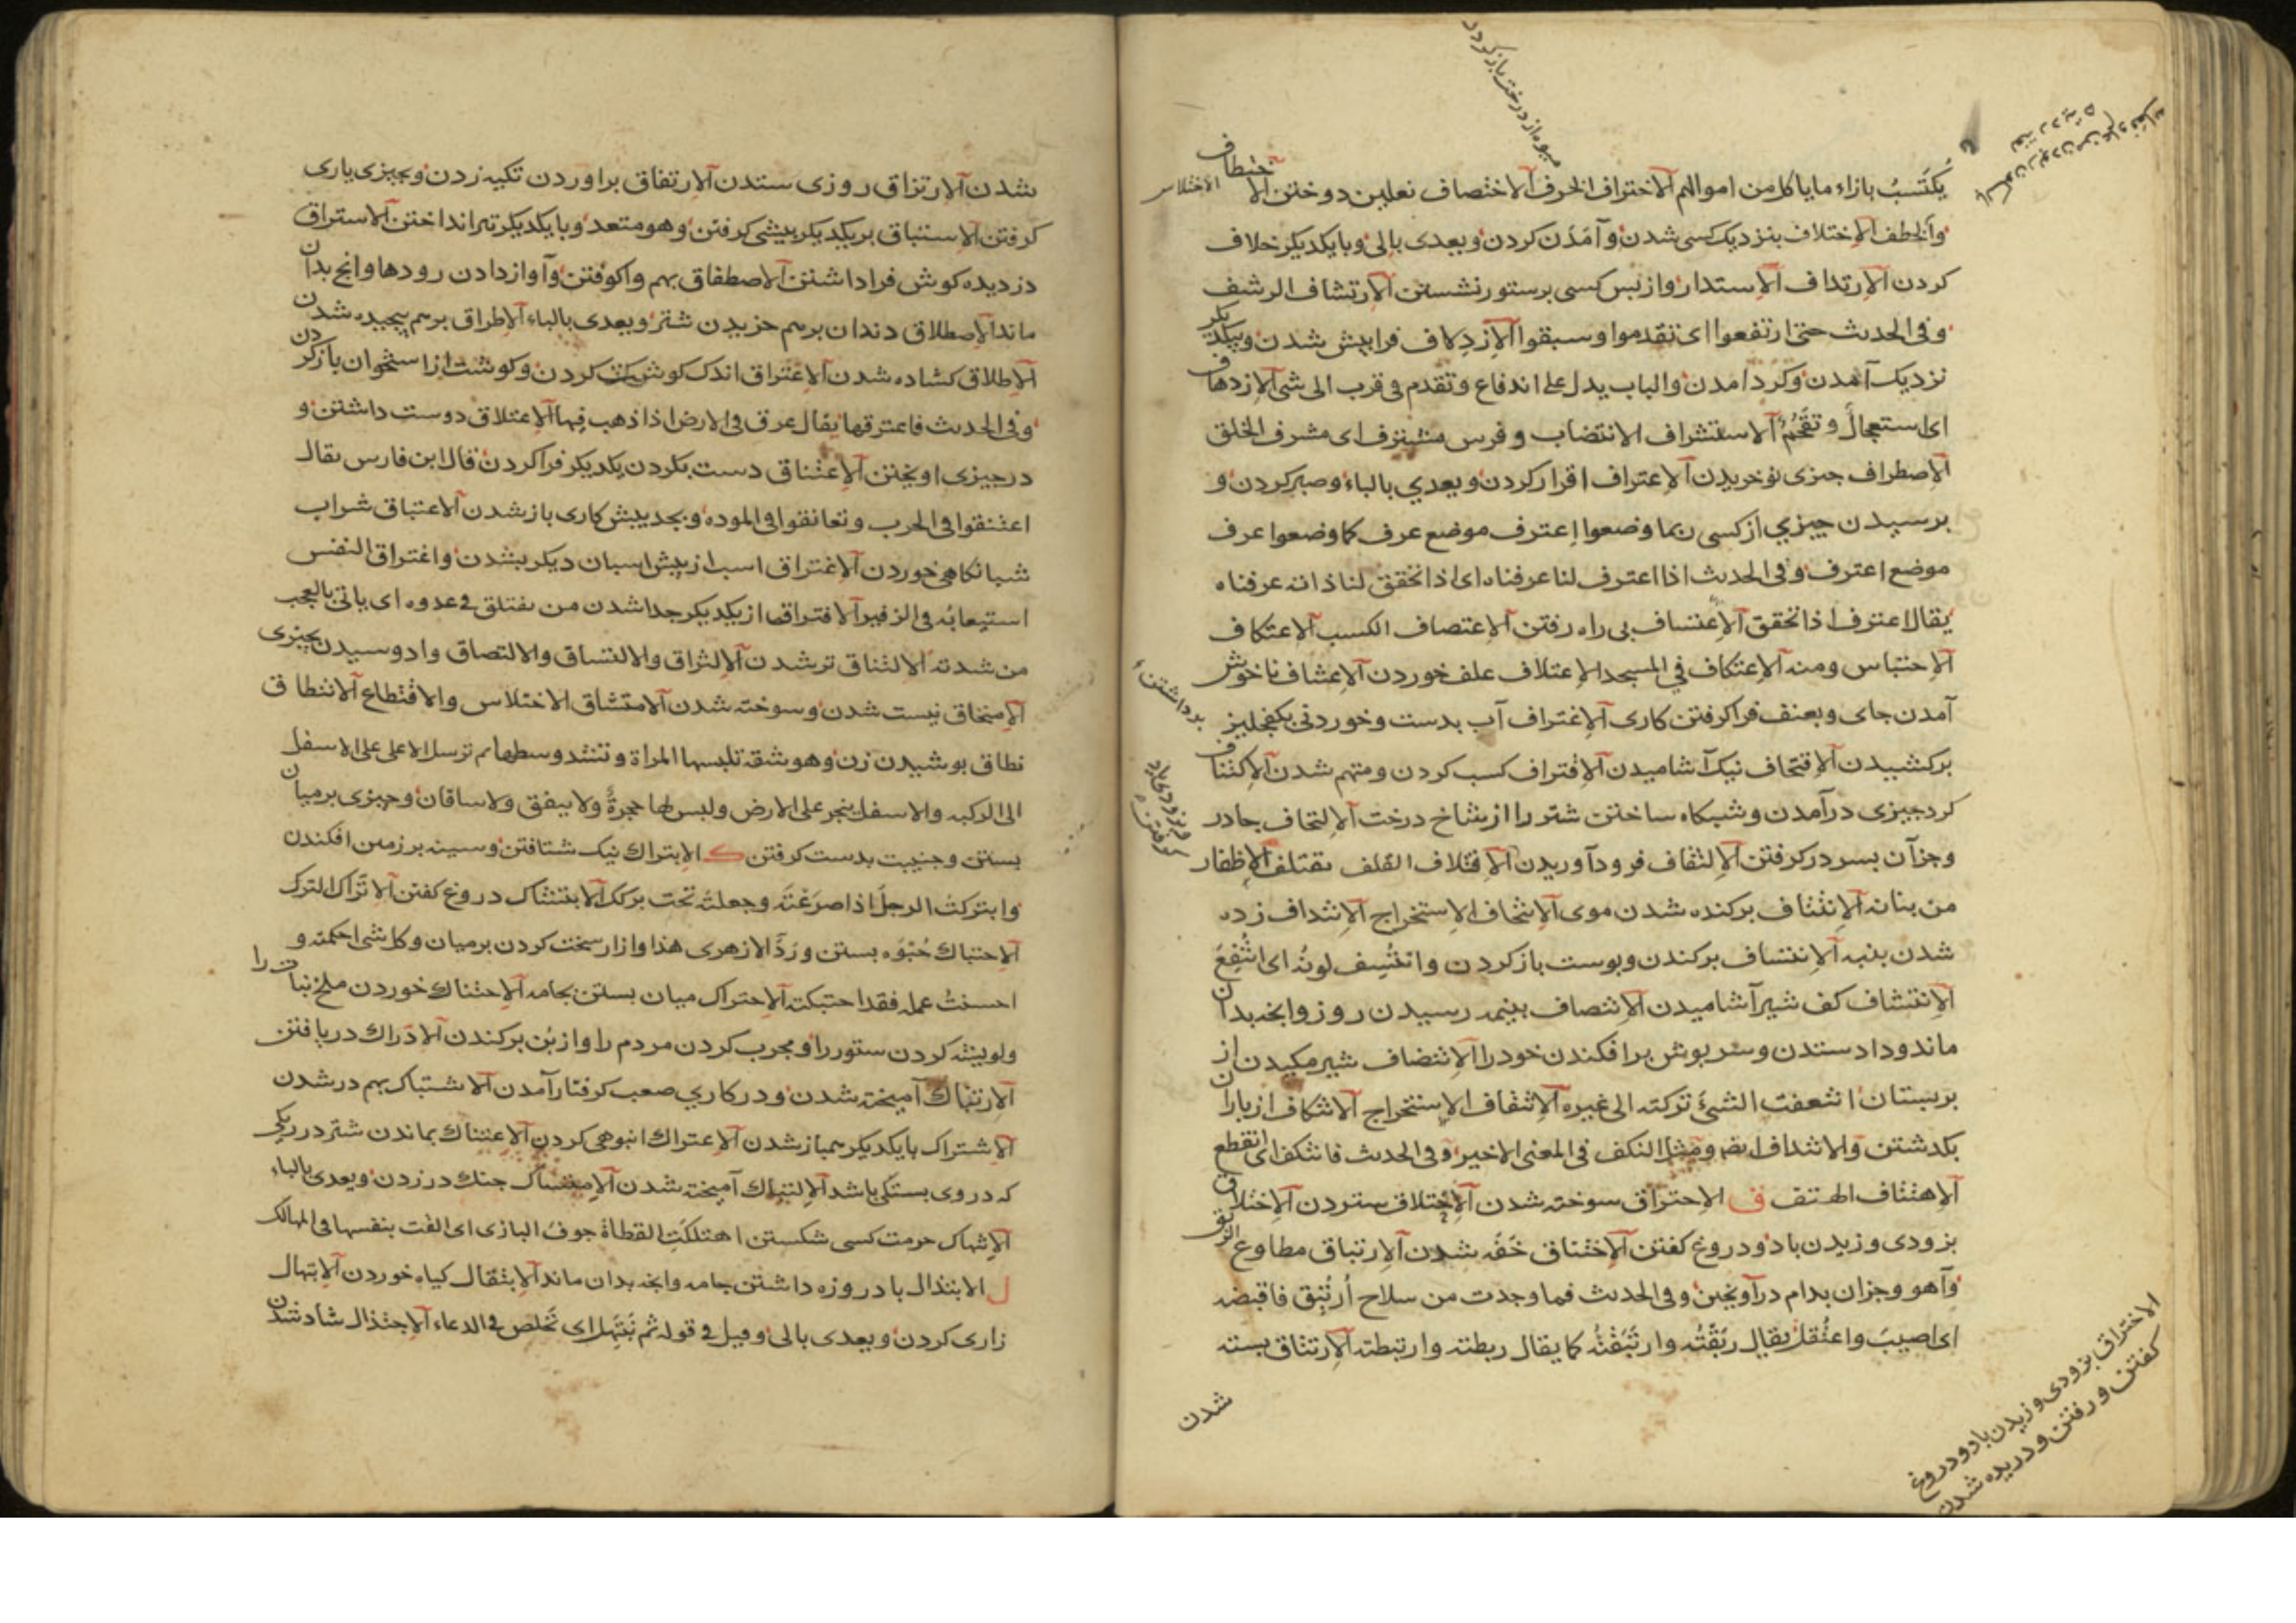 یکتسب بازاء ما یاکل من اموالهم الاختراف الخرف الاختصاف نعلین دوختن الا ختطاف
والخطف الاختلاف بنزدیک کسی شدن و آمدن کردن و یعدی بالی و بایکدیکر خلاف
کردن الارتداف الاستدبار و از پس کسی بر ستور نشستن الارتشاف الرشف
و فی الحدیث حتی ارتفعوا ای تقدموا و سبقوا الازدلاف فرا پیش شدن و بیکدیکر
نزدیک آمدن و کرد امدن و الباب یدل علی اندفاع و تقدم فی قرب الی شی الازدهاف
ای استعجال و تقحم الاستشراف الانتصاب و فرس مشترف ای مشرف الخلق
الاطراف چیزی نو خریدن الاعتراف اقرار کردن و یعدی بالباء و صبر کردن و
برسیدن چیزی از کسی ربما وضعوا اعترف موضع عرف کما وضعوا عرف
موضع اعترف و فی الحدیث اذا اعترف لنا عرفناه ای اذا تحقق لنا ذانه عرفناه
یقال اعترف اذا تحقق الاعتساف بی راه رفتن الاعتصاف الکسب الاعتکاف
الاحتباس و منه الاعتکاف فی المسجد الاعتلاف علف خوردن الاعتناف ناخوش
آمدن جای و بعنف فرا کرفتن کاری الاغتراف آب بدست و خوردنی بکفجلیز
برکشیدن الاقتحاف نیک آشامیدن الاقتراف کسب کردن و متهم شدن الاکتناف
کرد چیزی درآمدن و شبکاه ساختن شتر را از شاخ درخت الالتحاف جادر
و جز آن بسر در کرفتن الالتقاف فرود آوریدن الاقتلاف القلف یقتلف الاظفار
من بنانه الانتتاف برکنده شدن موی الانتحاف الاستخراج الانتداف زده
شدن بنبه الانتساف برکندن و بوست باز کردن و انتسف لونه ای انتقع
الانتشاف کف شیر آشامیدن الانتصاف بنیمه رسیدن روز و انچه بدان
ماند و داد ستدن و سربوش برافکندن خود را الانتضاف شیر مکیدن از
بربستان انتعفت الشیء ترکته الی غیره الانتقاف الاستخراج الانتکاف از باران
بکدشتن و الانتداف ایضا و مثل النکف فی المعنی الاخیر و فی الحدیث فانتکف ای انقطع
الاهتتاف الهتف ق الاحتراق سوخته شدن الاحتلاق ستردن الاختلاق
بزودی و زیدن باد و دروغ کفتن الاختناق خفه شدن الارتباق مطاوع الربق
و آهو و جز ان بدام درآویختن و فی الحدیث فما وجدت من سلاح ارتبق فاقبضه
ای اصیب و اعتقل یقال ربقته و ارتبقته کما یقال ربطته و ارتبطته الارتتاق بسته
شدن
الاختلاس
میوه از درخت باز کردن
برداشتن
الاختراق بزودی و زیدن باد و دروغ
کفتن و رفتن و دریده شدن
شدن الارتزاق روزی ستدن الارتفاق براوردن تکیه زدن و بچیزی یاری
کرفتن الاستباق بر یکدیکر بیشی کرفتن و هو متعد و بایکدیکر تیر انداختن الاستراق
دزدیده کوش فراداشتن الاصطفاق بهم واکوفتن و آواز دادن رودها و انچ بدان
ماند الاصطلاق دندان برهم خزیدن شتر و یعدی بالباء الاطراق برهم پیچیده شدن
الاطلاق کشاده شدن الاعتراق اندک کوشت کردن و کوشت از استخوان باز کردن
و فی الحدیث فاعترقها یقال عرق فی الارض اذا ذهب فیها الاعتلاق دوست داشتن و
در چیزی اویختن الاعتناق دست بکردن یکدیکر فرا کردن قال ابن فارس یقال
اعتنقوا فی الحرب و تعانقوا فی الموده و بجد پیش کاری باز شدن الاغتباق شراب
شبانکاهی خوردن الاغتراق اسب از پیش اسبان دیکر بشدن و اغتراق النفس
استیعابه فی الزفیر الافتراق از یکدیکر جدا شدن من یفتلق فی عدوه ای یاتی بالعجب
من شدته الالتثاق تر شدن الالتزاق و الالتساق و الالتصاق وا دوسیدن بچیزی
الامتحاق نیست شدن و سوخته شدن الامتشاق الاختلاس و الاقتطاع الانتطاق
نطاق بوشیدن زن و هو شقة تلبسها المراة و تشد وسطها ثم ترسل الاعلی علی الاسفل
الی الرکبه و الاسفل ینجر علی الارض و لیس لها حجزة و لا نیفق و لا ساقان و چیزی برمیان
بستن و جنیبت بدست کرفتن ک الابتراک نیک شتافتن و سینه برزمین افکندن
و ابترکت الرجل اذا صرعته و جعلته تحت برکک الابتشاک دروغ کفتن الاتراک الترک
الاحتباک حبوه بستن و رد الازهری هذا و ازار سخت کردن برمیان و کل شی احکمته و
احسنت عمله فقد احتبکته الاحتراک میان بستن بجامه الاحتناک خوردن ملخ نبات را
و لویشه کردن ستور را و مجرب کردن مردم را و از بن برکندن الادراک دریافتن
الارتباک آمیخته شدن و در کاری صعب کرفتار آمدن الاشتباک بهم درشدن
الاشتراک بایکدیکر همباز شدن الاعتراک انبوهی کردن الاعتناک بماندن شتر در ریکی
که در وی بستکی باشد الالتباک آمیخته شدن الامتساک چنک در زدن و یعدی بالباء
الانتهاک حرمت کسی شکستن اهتلکت القطاة خوف البازی ای القت بنفسها فی المهالک
ل الابتذال باد روزه داشتن جامه و انچه بدان ماند الابتقال کیاه خوردن الابتهال
زاری کردن و یعدی بالی و قیل فی قوله ثم نبتهل ای نخلص فی الدعاء الاجتذال شاد شدن